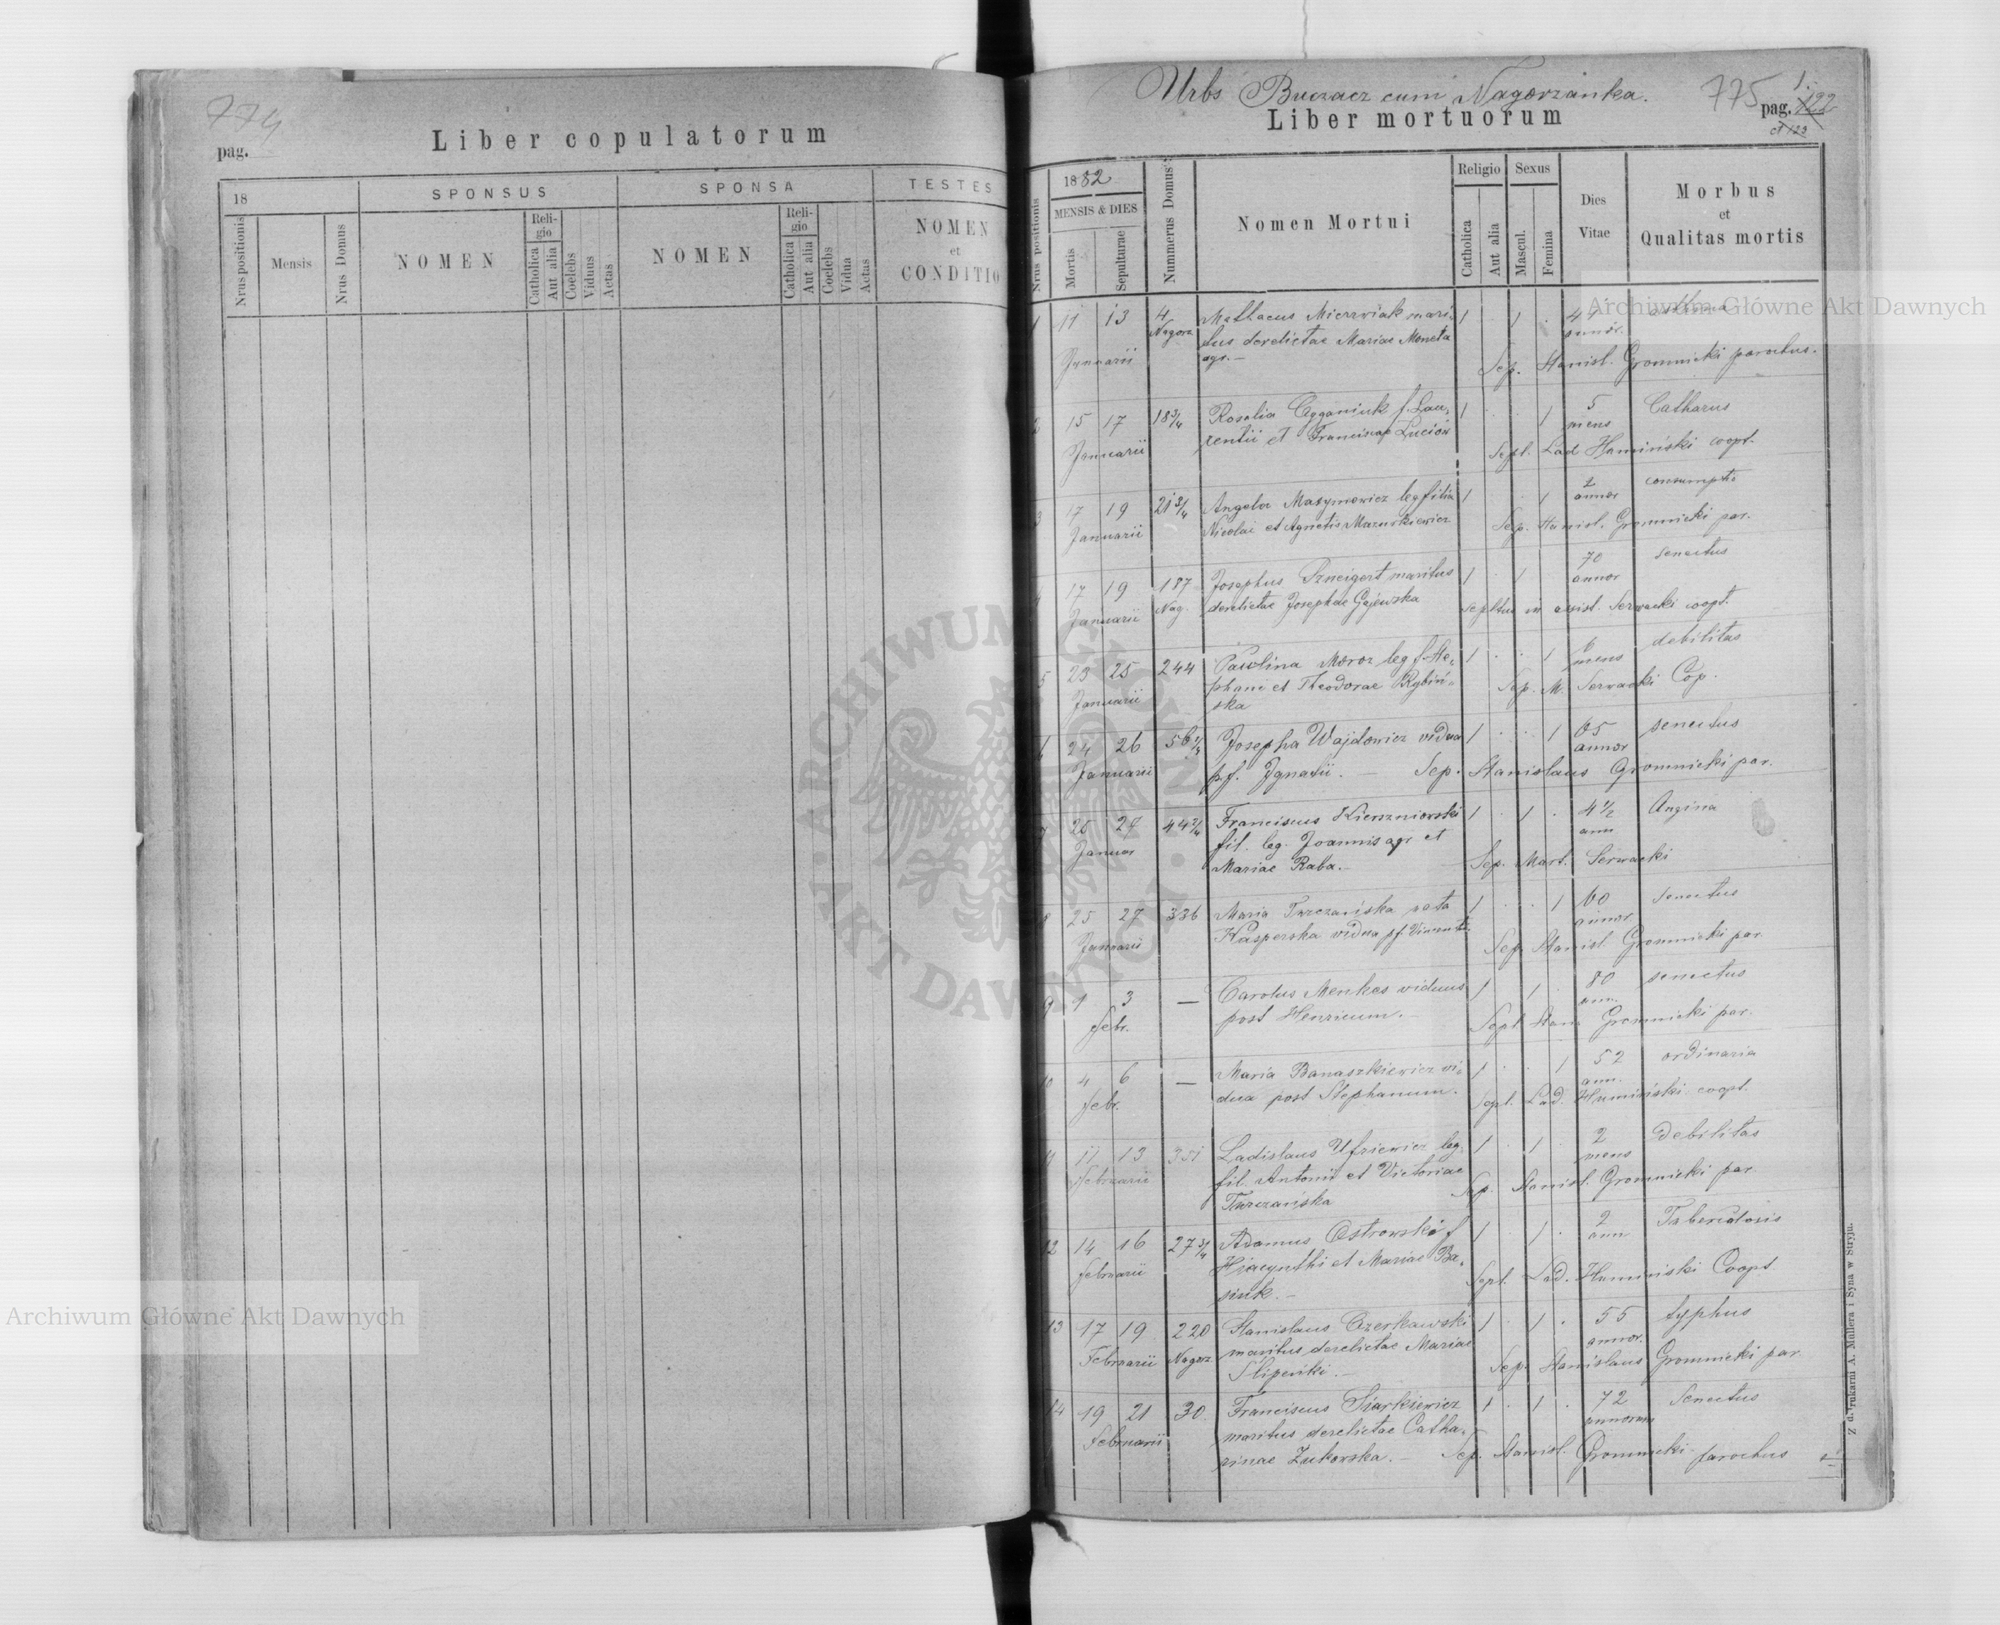 774
pag.
Liber copulatorum
18
SPONSUS
SPONSA
TESTES
Nrus positionis
Mensis
Nrus Domus
NOMEN
Religio
Catholica
Aut alia
Coelebs
Viduus
Aetas
NOMEN
Religio
Catholica
Aut alia
Coelebs
Vidua
Aetas
NOMEN
et
CONDITIO
Urbs Buczacz cum Nagorzanka.
775
pag. 122
et 123
Liber mortuorum
Nrus positionis
1882
MENSIS & DIES
Mortis
Sepulturae
Nummerus Domus
Nomen Mortui
Religio
Catholica
Aut alia
Sexus
Mascul.
Femina
Dies
Vitae
Morbus
et
Qualitas mortis
1 11 13 4 Mathaeus Mierzwiak mari- 1 . 1 . asthma
Januarii Nagorz tus derelictae Mariae Moneta annor.
agr. — Sep. Stanisl. Gromnicki parochus.
2 15 17 18 3/4 Rosalia Cyganiuk f. Lau- 1 . . 1 5 Catharus
Januarii rentii et Franciscae Luciów mens
Sept. Lad Humiński coopt.
3 17 19 21 3/4 Angela Maxymowicz leg filia 1 . . 1 2 consumptio
Januarii Nicolai et Agnetis Mazurkiewicz annor
Sep. Stanisl. Gromnicki par.
4 17 19 187 Josephus maritus 1 . 1 . 70 senectus
Januarii Nag. derelictae Josephae Gajewska annor
Serwacki coopt.
5 23 25 244 Paulina Moroz leg f. Ste- 1 . . 1 6 debilitas
Januarii phani et Theodorae Rybiń- mens
ska Sep. M. Serwacki Cop.
6 24 26 56 Josepha Wajdowicz vidua 1 . . 1 65 senectus
Januarii p. f. Ignatii. — annor
Sep. Stanislaus Gromnicki par.
7 25 27 44 2/4 Franciscus Kierszniowski 1 . 1 . 4 1/2 Angina
Januar fil. leg. Joannis agr et ann
Mariae Raba. — Sep. Mart. Serwacki
8 25 27 336 Maria Turczańska nata 1 . . 1 60 senectus
Januarii Kasperska vidua p f. Vincentii annor
Sep. Stanisl. Gromnicki par
9 1 3 — Carolus Menkes viduus 1 1 . 80 senectus
febr. post Henricum. — ann.
Sept Stan. Gromnicki par.
10 4 6 — Maria Banaszkiewicz vi- 1 . . 1 52 ordinaria
febr. dua post Stephanum. ann.
Sept. Lad. Humiński coopt.
11 11 13 351 Ladislaus Ufriewicz leg. 1 . 1 . 2 debilitas
februarii fil. Antonii et Victoriae mens
Turczańska Sep. Stanisl. Gromnicki par
12 14 16 27 3/4 Adamus Ostrowski f 1 . 1 . 2 Tuberculosis
februarii Hiacynthi et Mariae Ba- ann
siuk. — Sept. Lad. Humiński Coopt
13 17 19 220 Stanislaus Czerkawski 1 . 1 . 55 typhus
Februarii Nagorz maritus derelictae Mariae annor.
Slipeńki. — Sep. Stanislaus Gromnicki par.
14 19 21 30 Franciscus Siarkiewicz 1 . 1 . 72 Senectus
februarii maritus derelictae Catha- annorum
rinae Zukowska. — Sep. Stanisl. Gromnicki parochus
Z drukarni A. Müllera i Syna w Stryju.
Archiwum Główne Akt Dawnych
Archiwum Główne Akt Dawnych
ARCHIWUM GŁÓWNE
AKT DAWNYCH